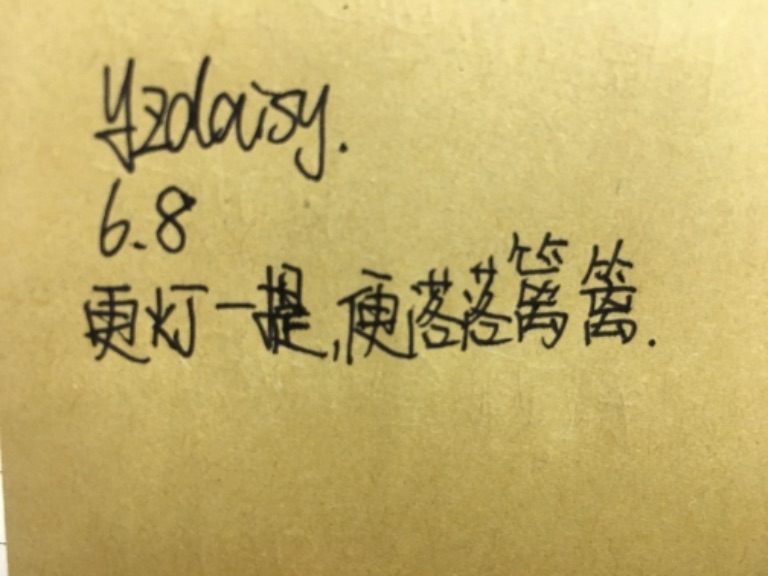 Yzdaisy.
6.8
更灯一提,便落落篱篱.